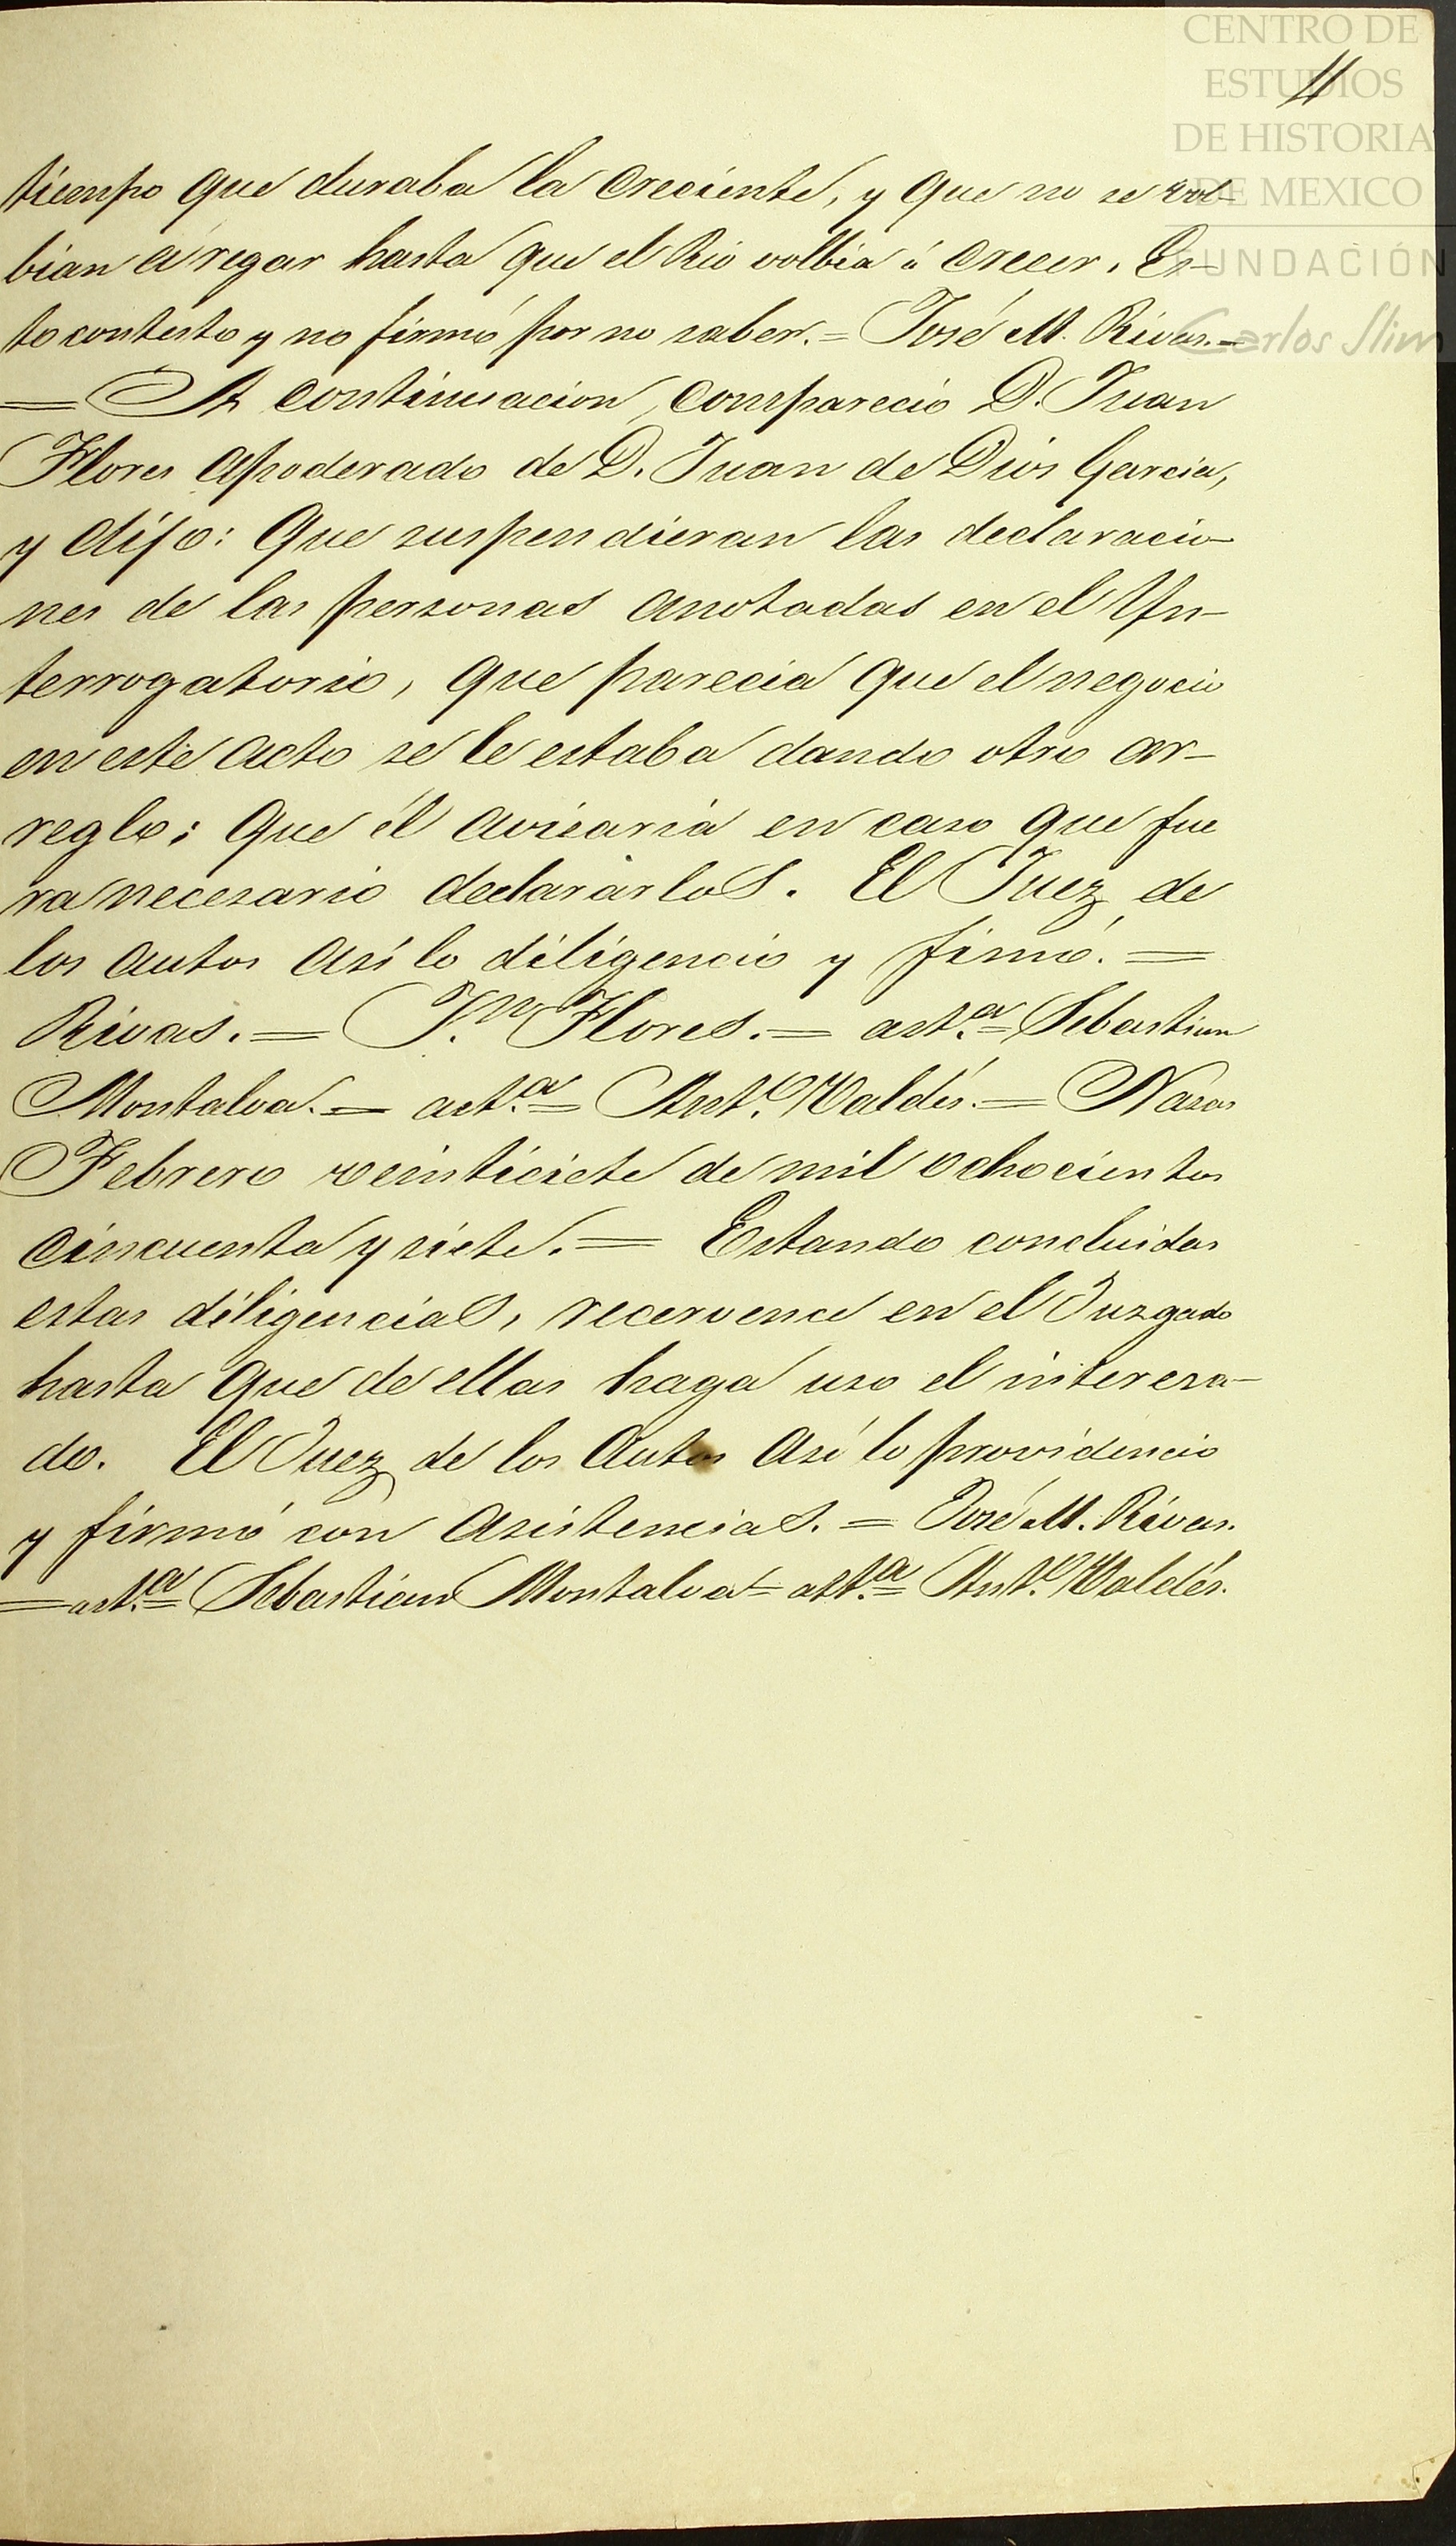 CENTRO DE
ESTUDIOS
DE HISTORIA
DE MEXICO
FUNDACIÓN
Carlos Slim
11
tiempo que duraba la creciente, y que no se vol-
bian á regar hasta que el Rio volbia á crecer. Es-
to contesto y no firmó por no saber. = José M. Rivas. =
= A continuacion, comparecio D. Juan
Flores apoderado de D. Juan de Dios Garcia,
y dijo: Que suspendieran las declaracio-
nes de las personas anotadas en el Yn-
terrogatorio, que parecia que el negocio
en este acto se le estaba dando otro ar-
reglo; que él avisaria en caso que fue
ra necesario declararlos. El Juez de
los autos así lo diligenció y firmó. =
Rivas. = J.n Flores. = ast.a = Sebastian
Montalva. = ast.a = Ant.o Valdés. = Nazas
Febrero veinticiete de mil ochocientos
cincuenta y siete. = Estando concluidas
estas diligencias, recervence en el Juzgado
hasta que de ellas haga uso el interesa-
do. El Juez de los Autos así lo providenció
y firmó con asistencias. = José M. Rivas.
= ast.a = Sebastian Montalva = ast.a = Ant.o Valdés.